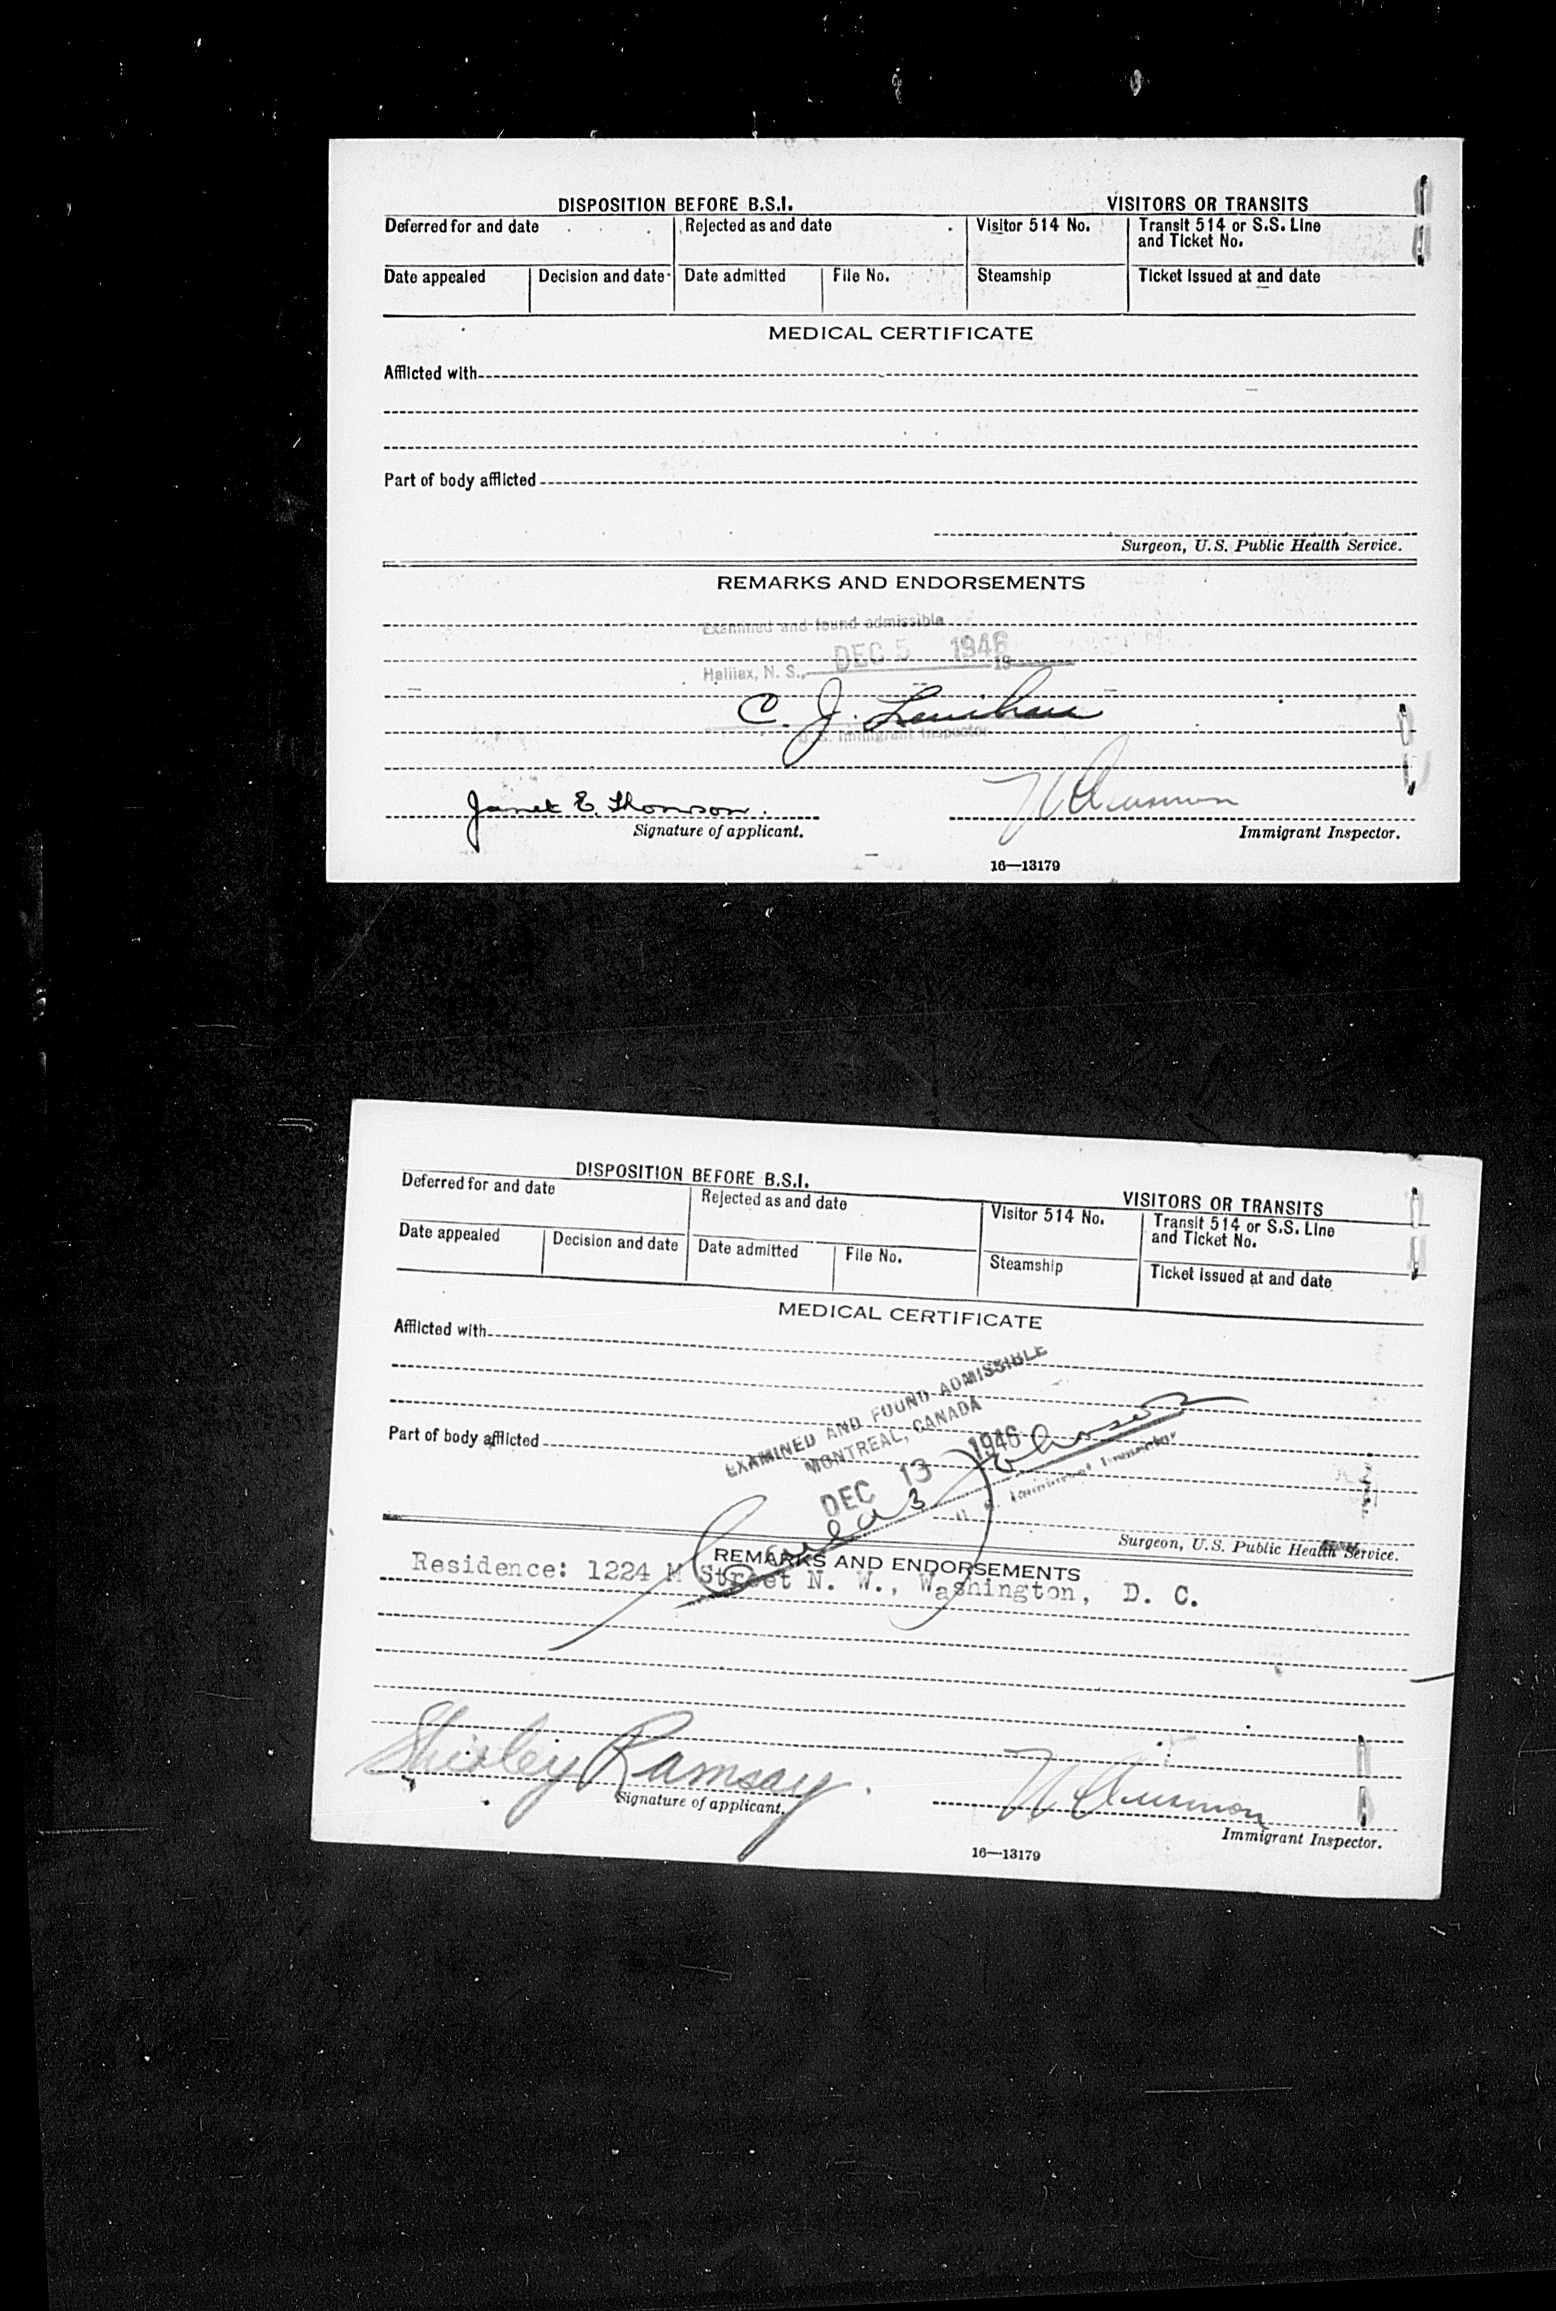 DISPOSITION BEFORE B.S.I. VISITORS OR TRANSITS
Deferred for and date Rejected as and date Visitor 514 No. Transit 514 or S.S. Line and Ticket No.
Date appealed Decision and date Date admitted File No. Steamship Ticket issued at and date
MEDICAL CERTIFICATE
Afflicted with
Part of body afflicted
Surgeon, U.S. Public Health Service.
REMARKS AND ENDORSEMENTS
Examined and found admissible
Halifax, N. S., DEC 5 1946 19
C. J. Lenihan
U.S. Immigrant Inspector
Janet E. Thomson.
Signature of applicant. Immigrant Inspector.
16—13179
DISPOSITION BEFORE B.S.I. VISITORS OR TRANSITS
Deferred for and date Rejected as and date Visitor 514 No. Transit 514 or S.S. Line and Ticket No.
Date appealed Decision and date Date admitted File No. Steamship Ticket issued at and date
MEDICAL CERTIFICATE
Afflicted with
EXAMINED AND FOUND ADMISSIBLE
MONTREAL, CANADA
Part of body afflicted
DEC 13 1946
U. S. Immigrant Inspector
Surgeon, U.S. Public Health Service.
REMARKS AND ENDORSEMENTS
Residence: 1224 M Street N. W., Washington, D. C.
Shirley Ramsay.
Signature of applicant. Immigrant Inspector.
16—13179